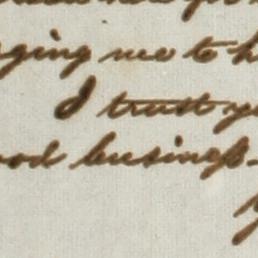 ging me to h
I trust yo
ood business.